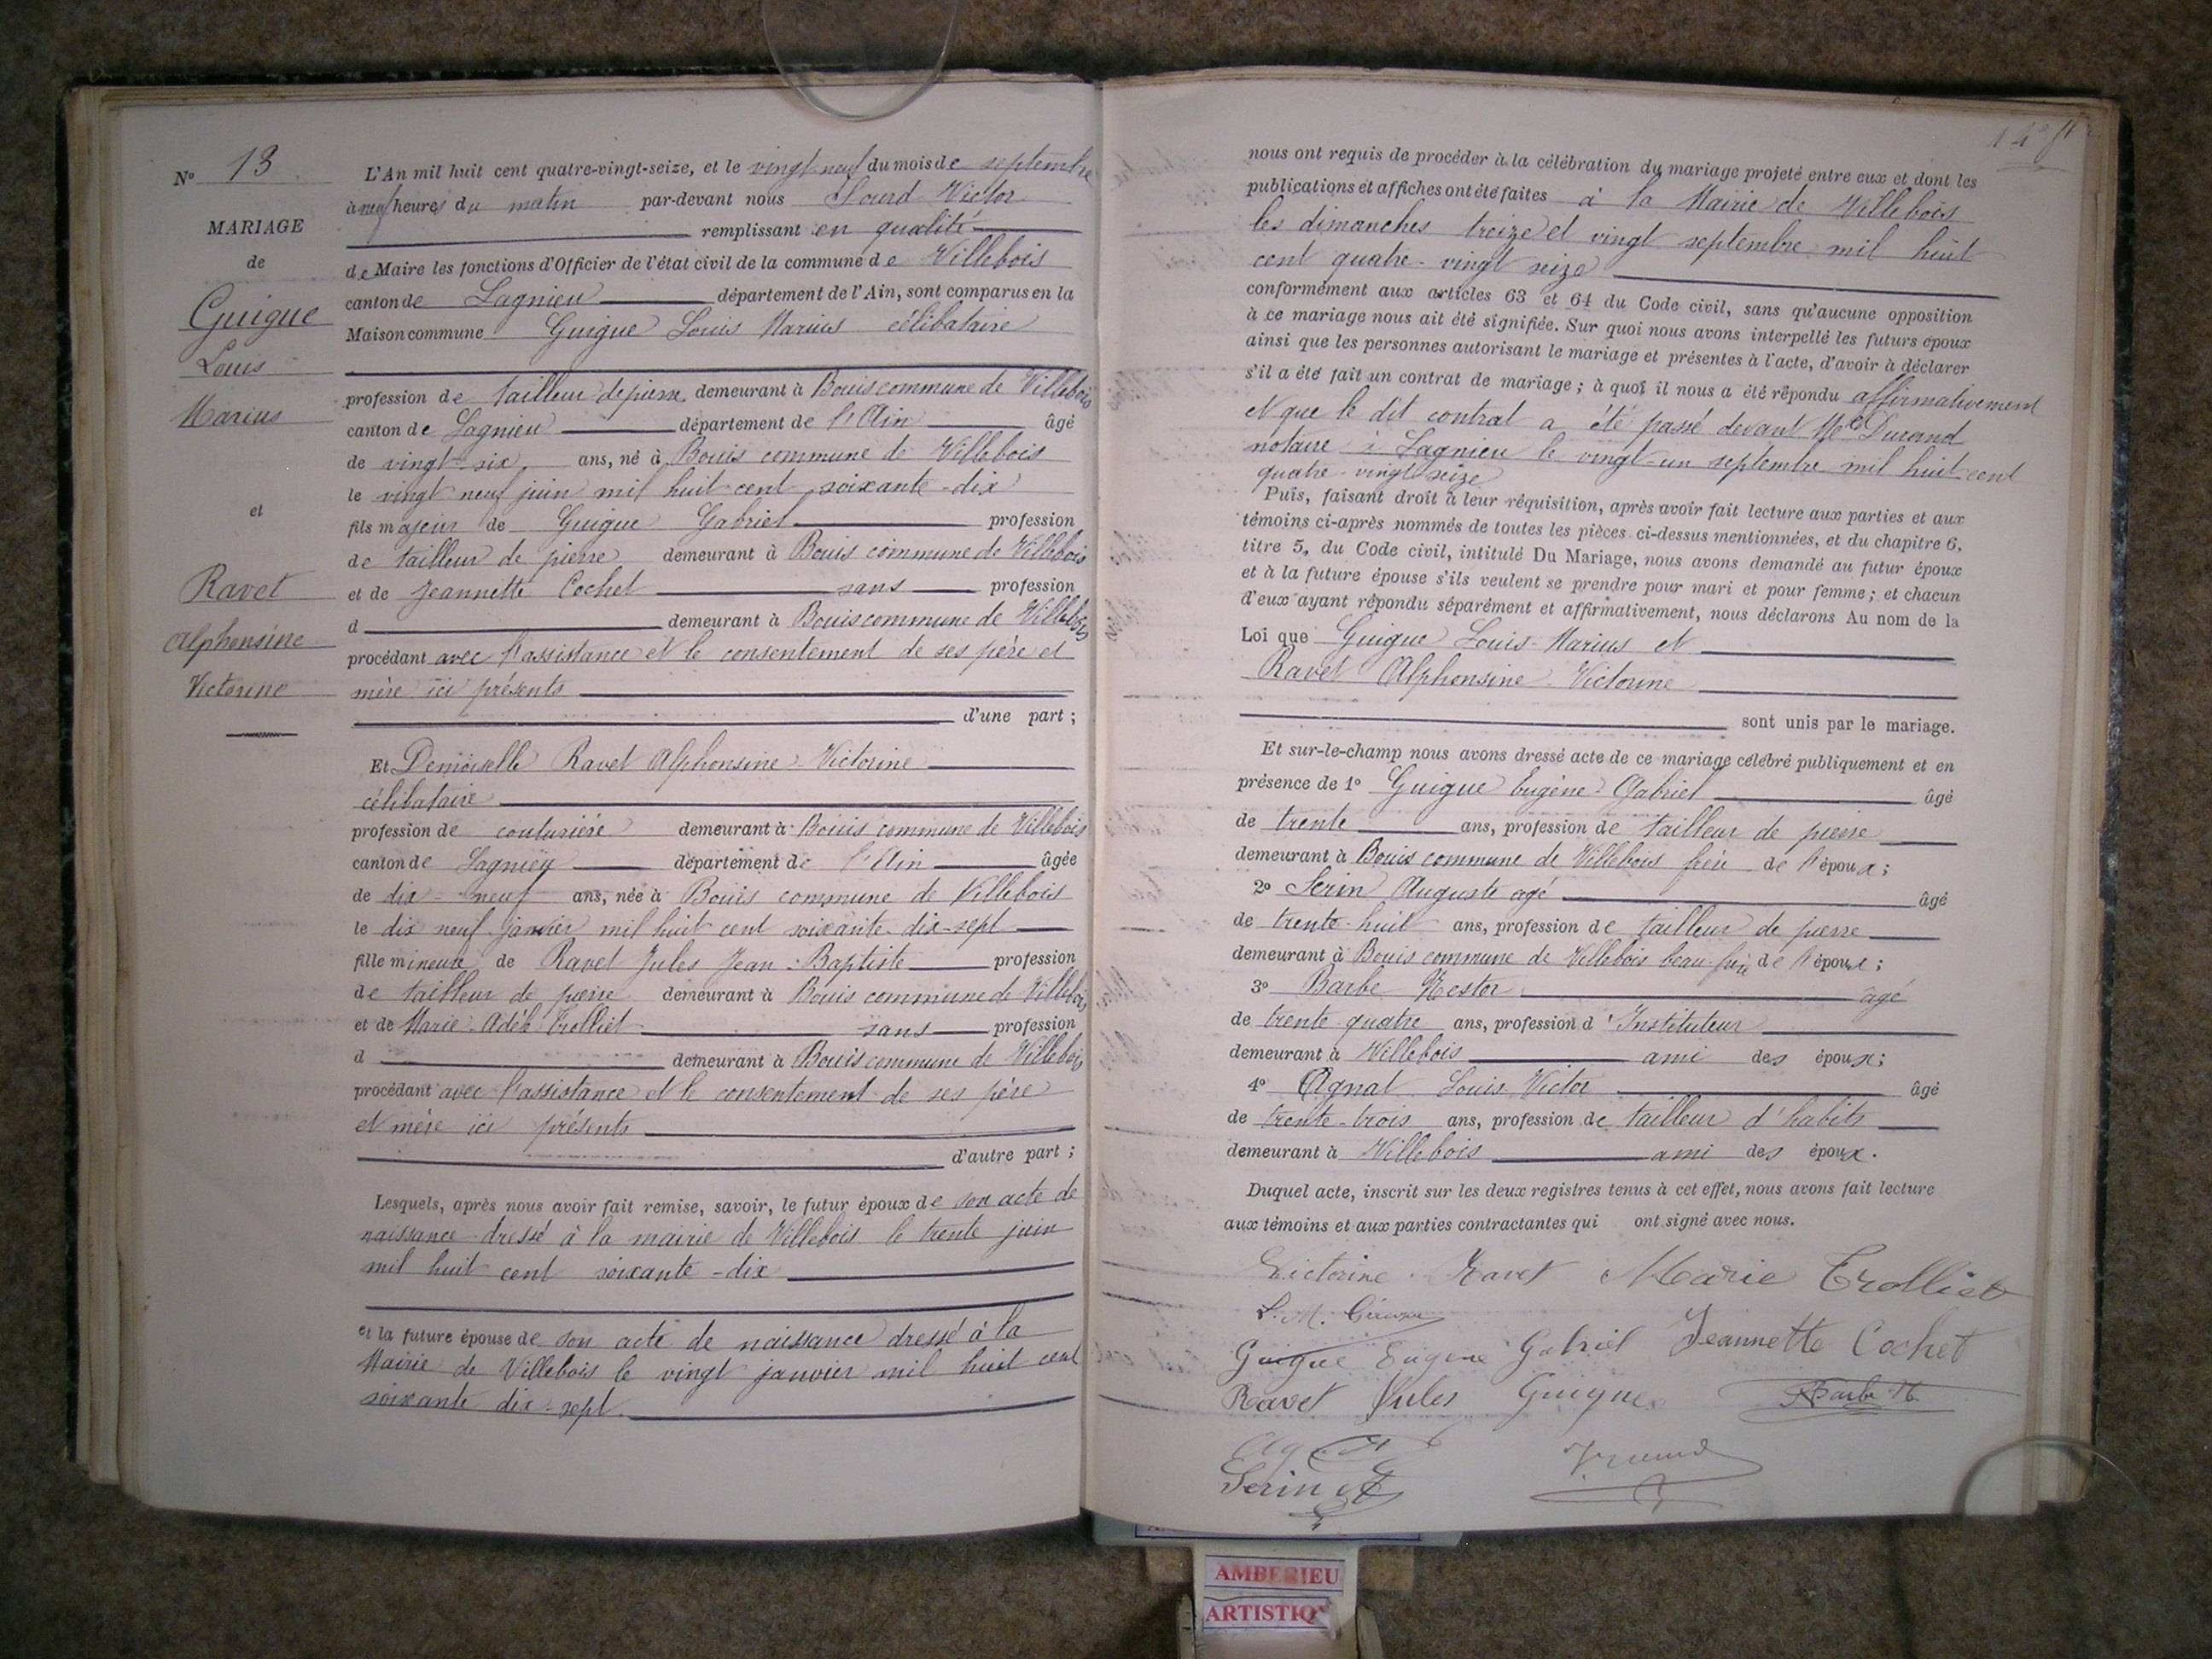 N° 13
MARIAGE
de
Guigue
Louis
Marius
et
Ravet
Alphonsine
Victorine
L'An mil huit cent quatre-vingt-seize, et le vingt neuf du mois de septembre
à neuf heures du matin par-devant nous Sourd Victor
remplissant en qualité
de Maire les fonctions d'Officier de l'état civil de la commune de Villebois
canton de Lagnieu département de l'Ain, sont comparus en la
Maison commune Guigue Louis Marius célibataire
profession de tailleur de pierre demeurant à Bouis commune de Villebois
canton de Lagnieu département de l'Ain âgé
de vingt-six ans, né à Bouis commune de Villebois
le vingt neuf juin mil huit cent soixante-dix
fils majeur de Guigue Gabriel profession
de tailleur de pierre demeurant à Bouis commune de Villebois
et de Jeannette Cochet sans profession
d demeurant à Bouis commune de Villebois
procédant avec l'assistance et le consentement de ses père et
mère ici présents
d'une part ;
Et Demoiselle Ravet Alphonsine-Victorine
célibataire
profession de couturière demeurant à Bouis commune de Villebois
canton de Lagnieu département de l'Ain âgée
de dix-neuf ans, née à Bouis commune de Villebois
le dix neuf janvier mil huit cent soixante-dix-sept
fille mineure de Ravet Jules Jean-Baptiste profession
de tailleur de pierre demeurant à Bouis commune de Villebois
et de Marie-Adèle Trolliet sans profession
d demeurant à Bouis commune de Villebois
procédant avec l'assistance et le consentement de ses père
et mère ici présents
d'autre part ;
Lesquels, après nous avoir fait remise, savoir, le futur époux de son acte de
naissance dressé à la mairie de Villebois le trente juin
mil huit cent soixante-dix
et la future épouse de son acte de naissance dressé à la
Mairie de Villebois le vingt janvier mil huit cent
soixante dix-sept
nous ont requis de procéder à la célébration du mariage projeté entre eux et dont les
publications et affiches ont été faites à la Mairie de Villebois
les dimanches treize et vingt septembre mil huit
cent quatre-vingt seize
conformément aux articles 63 et 64 du Code civil, sans qu'aucune opposition
à ce mariage nous ait été signifiée. Sur quoi nous avons interpellé les futurs époux
ainsi que les personnes autorisant le mariage et présentes à l'acte, d'avoir à déclarer
s'il a été fait un contrat de mariage ; à quoi il nous a été répondu affirmativement
et que le dit contrat a été passé devant Me Durand
notaire à Lagnieu le vingt-un septembre mil huit cent
quatre-vingt seize
Puis, faisant droit à leur réquisition, après avoir fait lecture aux parties et aux
témoins ci-après nommés de toutes les pièces ci-dessus mentionnées, et du chapitre 6,
titre 5, du Code civil, intitulé Du Mariage, nous avons demandé au futur époux
et à la future épouse s'ils veulent se prendre pour mari et pour femme ; et chacun
d'eux ayant répondu séparément et affirmativement, nous déclarons Au nom de la
Loi que Guigue Louis-Marius et
Ravet Alphonsine Victorine
sont unis par le mariage.
Et sur-le-champ nous avons dressé acte de ce mariage célébré publiquement et en
présence de 1° Guigue Eugène Gabriel âgé
de trente ans, profession de tailleur de pierre
demeurant à Bouis commune de Villebois frère de l'époux ;
2° Serin Auguste agé âgé
de trente-huit ans, profession de tailleur de pierre
demeurant à Bouis commune de Villebois beau-frère de l'époux ;
3° Barbe Nestor agé
de trente quatre ans, profession d'Instituteur
demeurant à Villebois ami des époux ;
4° Agnat Louis Victor âgé
de trente-trois ans, profession de tailleur d'habits
demeurant à Villebois ami des époux.
Duquel acte, inscrit sur les deux registres tenus à cet effet, nous avons fait lecture
aux témoins et aux parties contractantes qui ont signé avec nous.
Victorine Ravet Marie Trolliet
L. M. Guigue
Guigue Eugène Gabriel Jeannette Cochet
Ravet Jules Guigue Barbe N.
Serin
AMBERIEU
ARTISTIQ